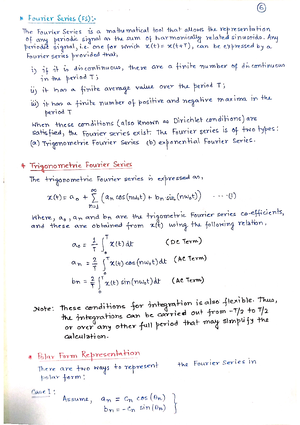 6
* Fourier Series (FS):-
The Fourier Series is a mathematical tool that allows the representation
of any periodic signal as the sum of harmonically related sinusoids. Any
periodic signal, i.e. one for which x(t) = x(t+T), can be expressed by a
Fourier series provided that,
i) if it is discontinuous, there are a finite number of discontinuous
in the period T;
ii) it has a finite average value over the period T;
iii) it has a finite number of positive and negative maxima in the
period T
When these conditions (also known as Dirichlet conditions) are
satisfied, the Fourier series exist. The Fourier series is of two types:
(a) Trigonometric Fourier Series (b) exponential Fourier Series.
* Trigonometric Fourier Series
The trigonometric Fourier series is expressed as,
x(t) = a₀ + ∞Σn=1 (aₙ cos(nω₀t) + bn sin(nω₀t)) ---(1)
Where, a₀, aₙ and bn are the trigometric Fourier series co-efficients,
and these are obtained from x(t) using the following relation.
a₀ = 1/T ∫₀ᵀ x(t) dt (DC Term)
aₙ = 2/T ∫₀ᵀ x(t) cos(nω₀t) dt (AC Term)
bn = 2/T ∫₀ᵀ x(t) sin(nω₀t) dt (AC Term)
Note: These conditions for integration is also flexible. Thus,
the integrations can be carried out from -T/2 to T/2
or over any other full period that may simplify the
calculation.
* Polar Form Representation
There are two ways to represent the Fourier Series in
polar form:
Case 1:
Assume, aₙ = cₙ cos(θₙ)
bn = -cₙ sin(θₙ) }